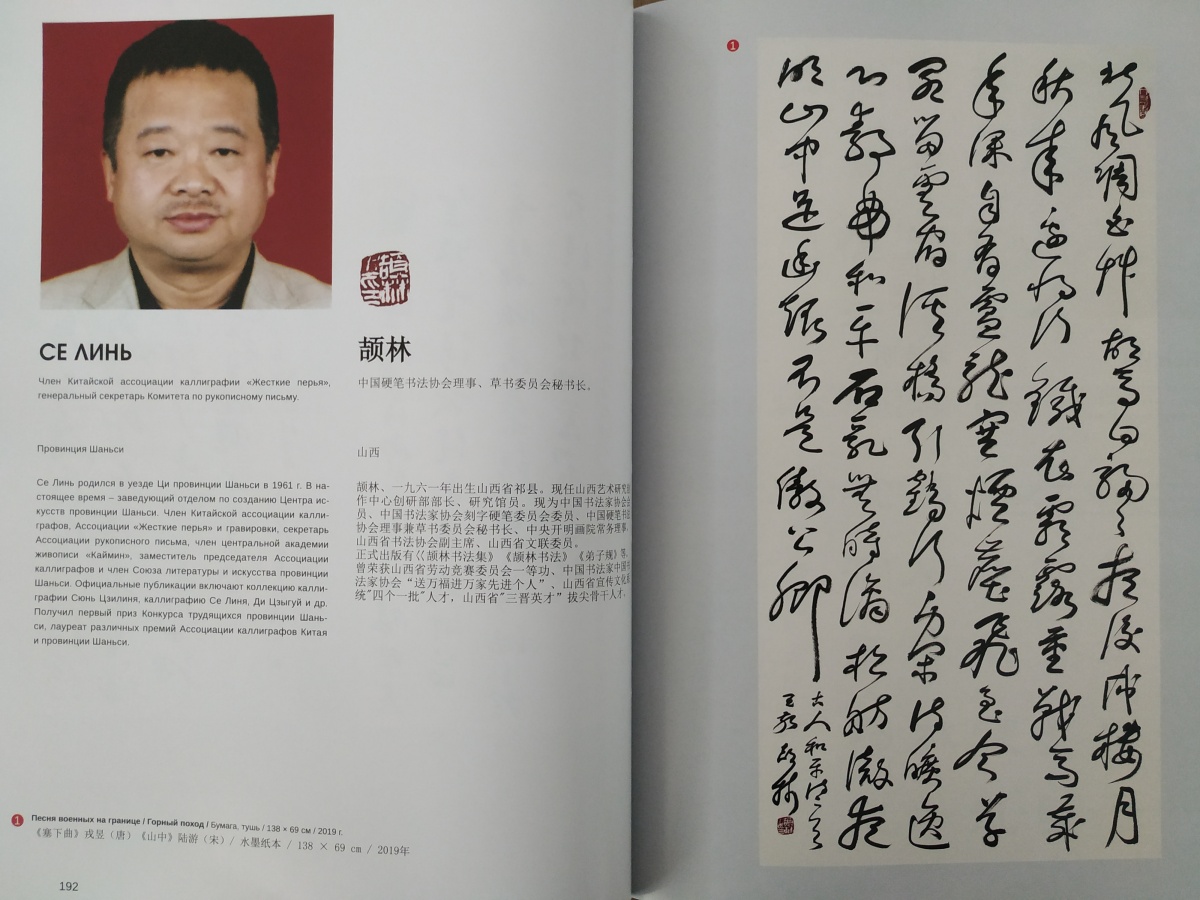 СЕ ЛИНЬ
Член Китайской ассоциации каллиграфии «Жесткие перья»,
генеральный секретарь Комитета по рукописному письму.
Провинция Шаньси
Се Линь родился в уезде Ци провинции Шаньси в 1961 г. В на-
стоящее время – заведующий отделом по созданию Центра ис-
кусств провинции Шаньси. Член Китайской ассоциации калли-
графов, Ассоциации «Жесткие перья» и гравировки, секретарь
Ассоциации рукописного письма, член центральной академии
живописи «Каймин», заместитель председателя Ассоциации
каллиграфов и член Союза литературы и искусства провинции
Шаньси. Официальные публикации включают коллекцию калли-
графии Сюнь Цзилиня, каллиграфию Се Линя, Ди Цзыгуй и др.
Получил первый приз Конкурса трудящихся провинции Шань-
си, лауреат различных премий Ассоциации каллиграфов Китая
и провинции Шаньси.
颉林
颉林
中国硬笔书法协会理事、草书委员会秘书长。
山西
颉林、一九六一年出生山西省祁县。现任山西艺术研究创
作中心创研部部长、研究馆员。现为中国书法家协会会
员、中国书法家协会刻字硬笔委员会委员、中国硬笔书法
协会理事兼草书委员会秘书长、中央开明画院常务理事、
山西省书法协会副主席、山西省文联委员。
正式出版有《颉林书法集》《颉林书法》《弟子规》等。
曾荣获山西省劳动竞赛委员会一等功、中国书法家中国书
法家协会“送万福进万家先进个人”，山西省宣传文化系
统"四个一批"人才，山西省"三晋英才”拔尖骨干人才。
1 Песня военных на границе / Горный поход / Бумага, тушь / 138 × 69 см / 2019 г.
《塞下曲》戎昱（唐）《山中》陆游（宋）/ 水墨纸本 / 138 × 69 cm / 2019年
192
1
北风凋白草胡马日骎骎夜后戍楼月
秋来边将心鐵衣霜露重战马岁
年深自有盧龙塞煙尘飛至今
留雲宿溪橋引鶴行
和平石乳無時滴松肪徹夜
明山中足幽趣不是傲公卿
古人和平诗二首